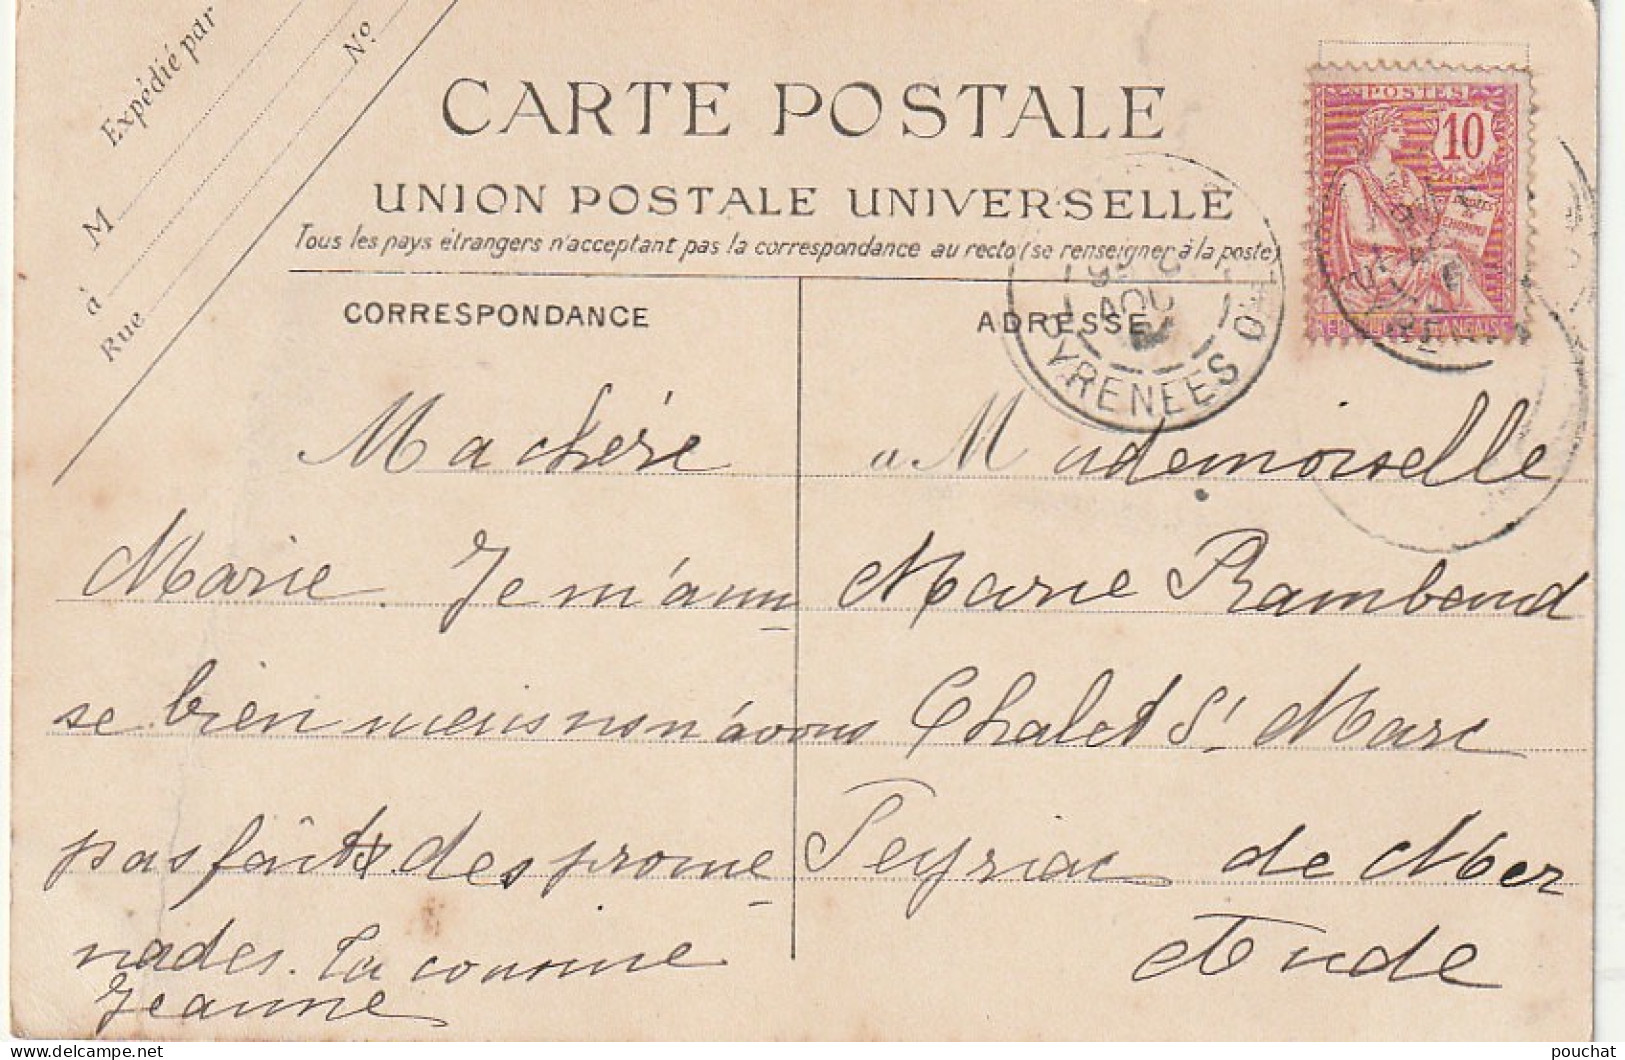 Expédié par
M
à
Rue
Nº
CARTE POSTALE
UNION POSTALE UNIVERSELLE
Tous les pays étrangers n'acceptant pas la correspondance au recto (se renseigner à la poste)
CORRESPONDANCE
Ma chère
Marie. Je m'amu
se bien mais non n'avons
pas faits des prome
nades. Ta cousine
Jeanne
ADRESSE
a Mademoiselle
Marie Rambaud
Chalet St Marc
Peyriac de Mer
Aude
POSTES
10
DROITS DE L'HOMME
REPUBLIQUE FRANÇAISE
AOU
PYRENEES O
pouchat